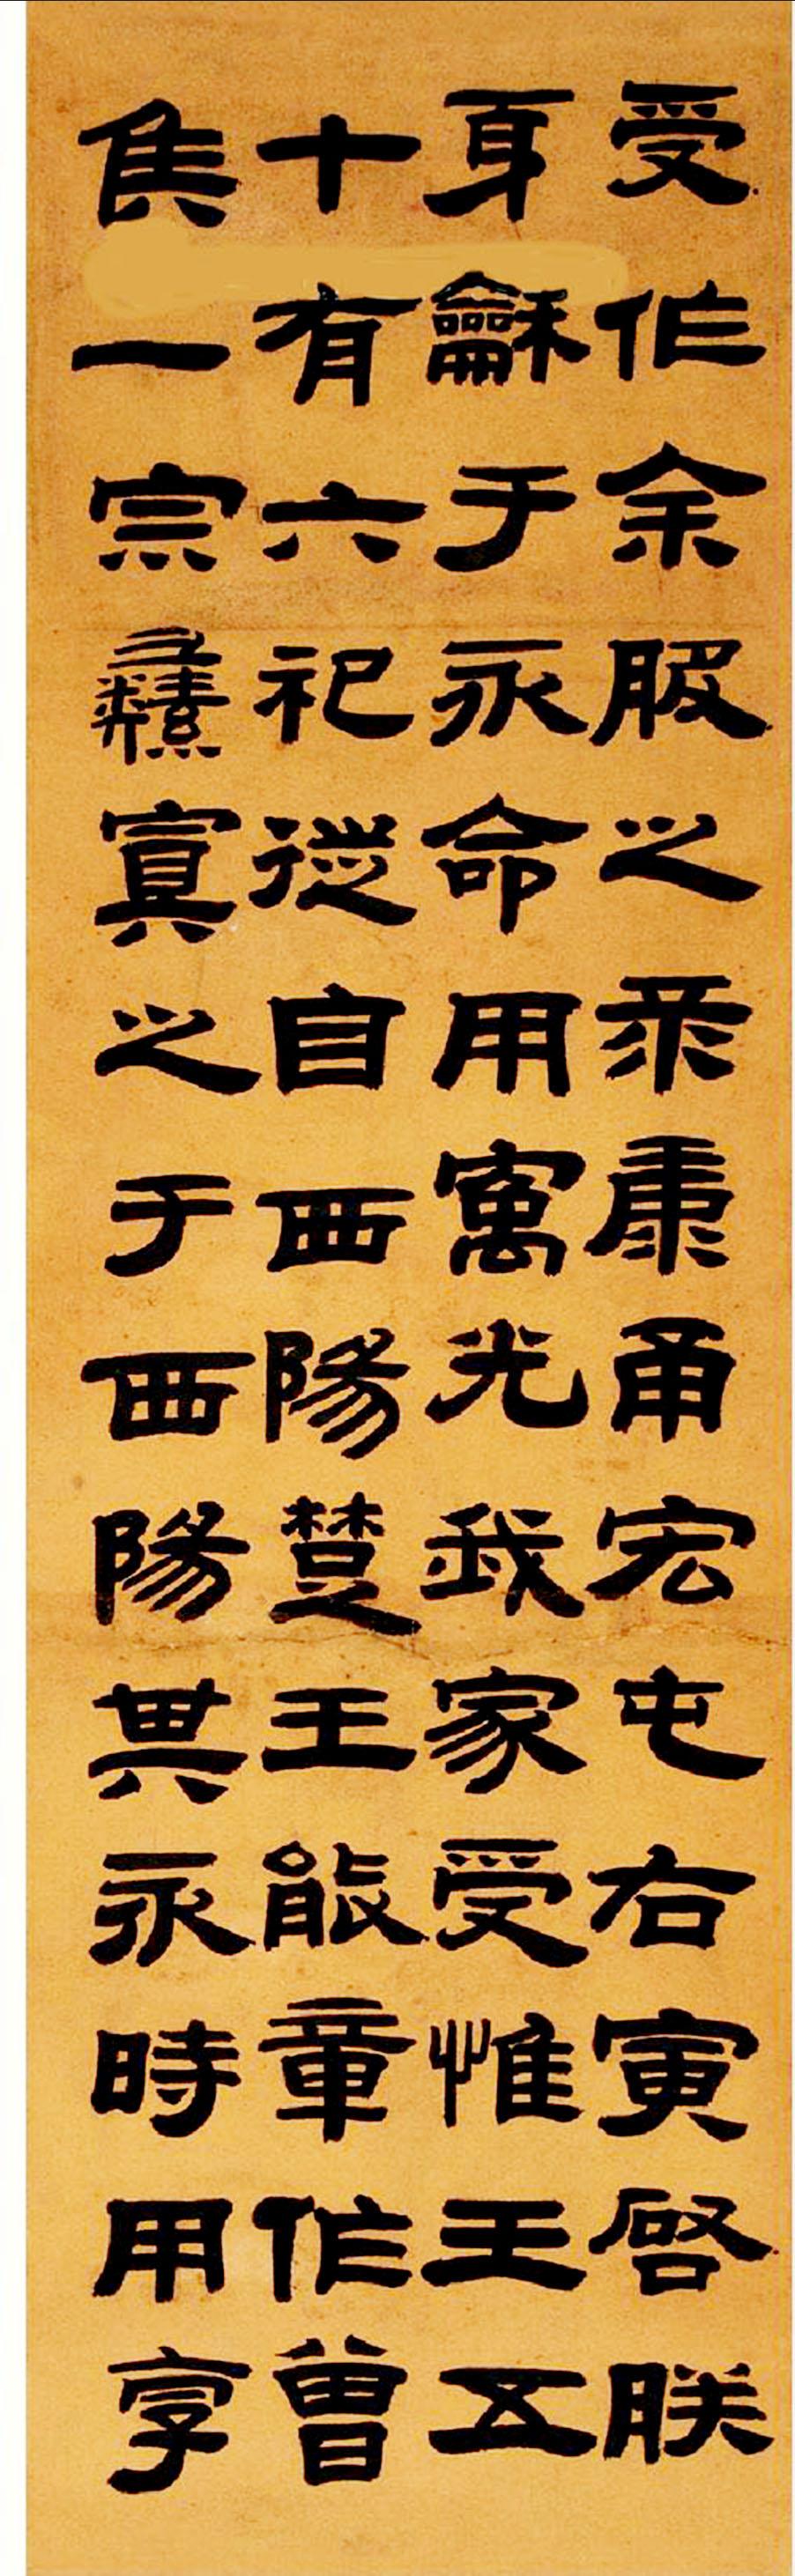 受作余服之康甬宏屯右寅啓朕
身龢于永命用寓光我家受惟王五
十有六祀從自西陽楚王能章作曾
矦一宗彝寘之于西陽其永時用享